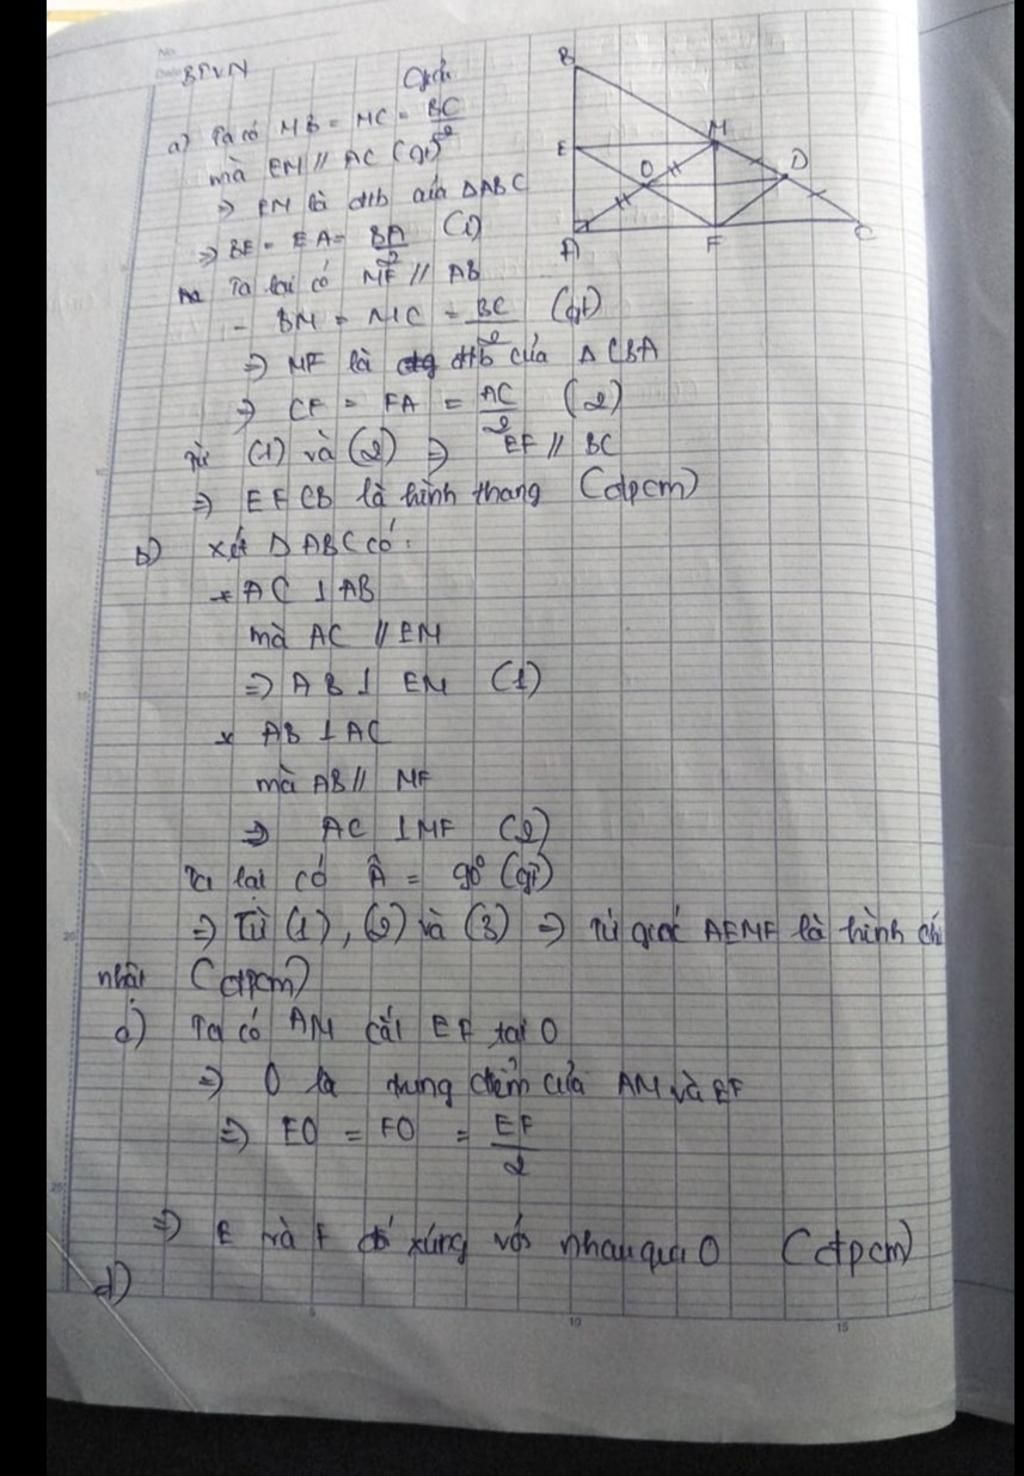 BTVN
Giải
a) Ta có MB = MC = BC/2
mà EM // AC (gt)
⇒ EM là đtb của ΔABC
⇒ BE = EA = BA/2 (1)
Ta lại có MF // AB
- BM = MC = BC/2 (gt)
⇒ MF là đtb của Δ CBA
⇒ CF = FA = AC/2 (2)
Từ (1) và (2) ⇒ EF // BC
⇒ EFCB là hình thang (đpcm)
b) xét Δ ABC có:
* AC ⊥ AB
mà AC // EM
⇒ AB ⊥ EM (1)
* AB ⊥ AC
mà AB // MF
⇒ AC ⊥ MF (2)
Ta lại có Â = 90° (gt)
⇒ Từ (1), (2) và (3) ⇒ Tứ giác AEMF là hình ch
nhật (đpcm)
c) Ta có AM cắt EF tại O
⇒ O là trung điểm của AM và EF
⇒ EO = FO = EF/2
⇒ E và F đối xứng với nhau qua O (đpcm)
d)
B
E
M
O
D
A
F
C
5
10
15